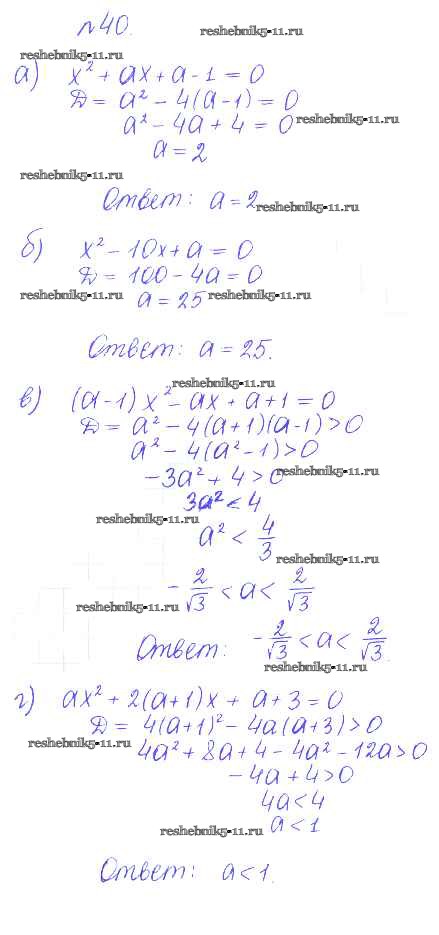 №40.
reshebnik5-11.ru
reshebnik5-11.ru
а) x² + ax + a - 1 = 0
Д = a² - 4(a - 1) = 0
a² - 4a + 4 = 0
reshebnik5-11.ru
a = 2
reshebnik5-11.ru
Ответ: a = 2
reshebnik5-11.ru
б) x² - 10x + a = 0
Д = 100 - 4a = 0
reshebnik5-11.ru
a = 25
reshebnik5-11.ru
Ответ: a = 25.
reshebnik5-11.ru
в) (a - 1)x² - ax + a + 1 = 0
Д = a² - 4(a + 1)(a - 1) > 0
a² - 4(a² - 1) > 0
reshebnik5-11.ru
-3a² + 4 > 0
3a² < 4
reshebnik5-11.ru
a² < 4/3
reshebnik5-11.ru
-2/√3 < a < 2/√3
reshebnik5-11.ru
Ответ: -2/√3 < a < 2/√3.
reshebnik5-11.ru
г) ax² + 2(a + 1)x + a + 3 = 0
Д = 4(a + 1)² - 4a(a + 3) > 0
reshebnik5-11.ru
4a² + 8a + 4 - 4a² - 12a > 0
-4a + 4 > 0
4a < 4
reshebnik5-11.ru
a < 1
Ответ: a < 1.